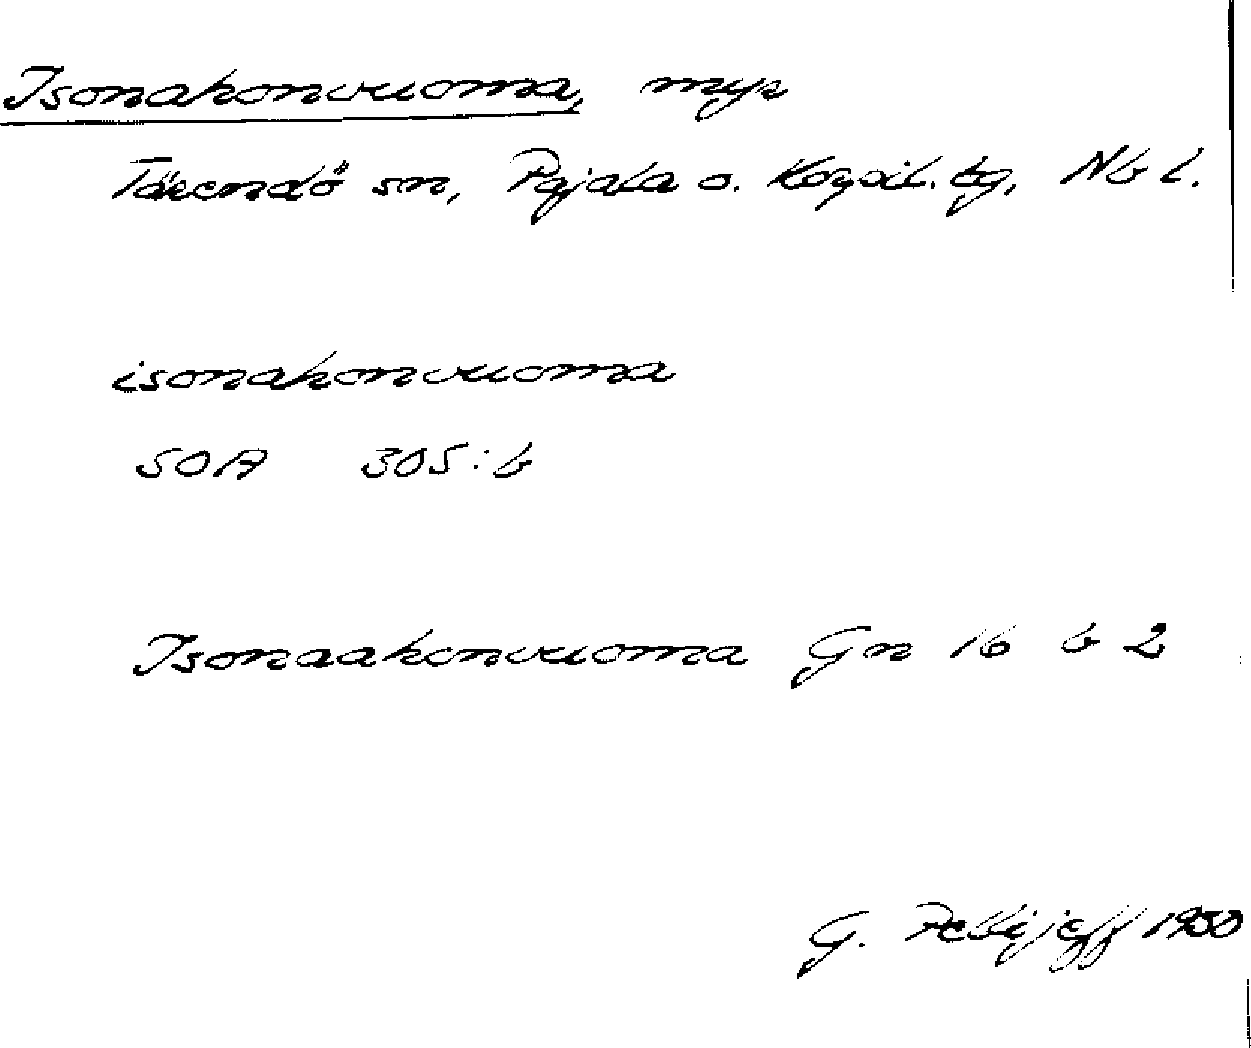 Isonakonvuoma, myr
Tärendö sn, Pajala o. Korpil. tg, Nb l.
isonakonvuoma
SOA 305:6
Isonaakonvuoma Gn 16 b 2
G. Pellijeff 1950